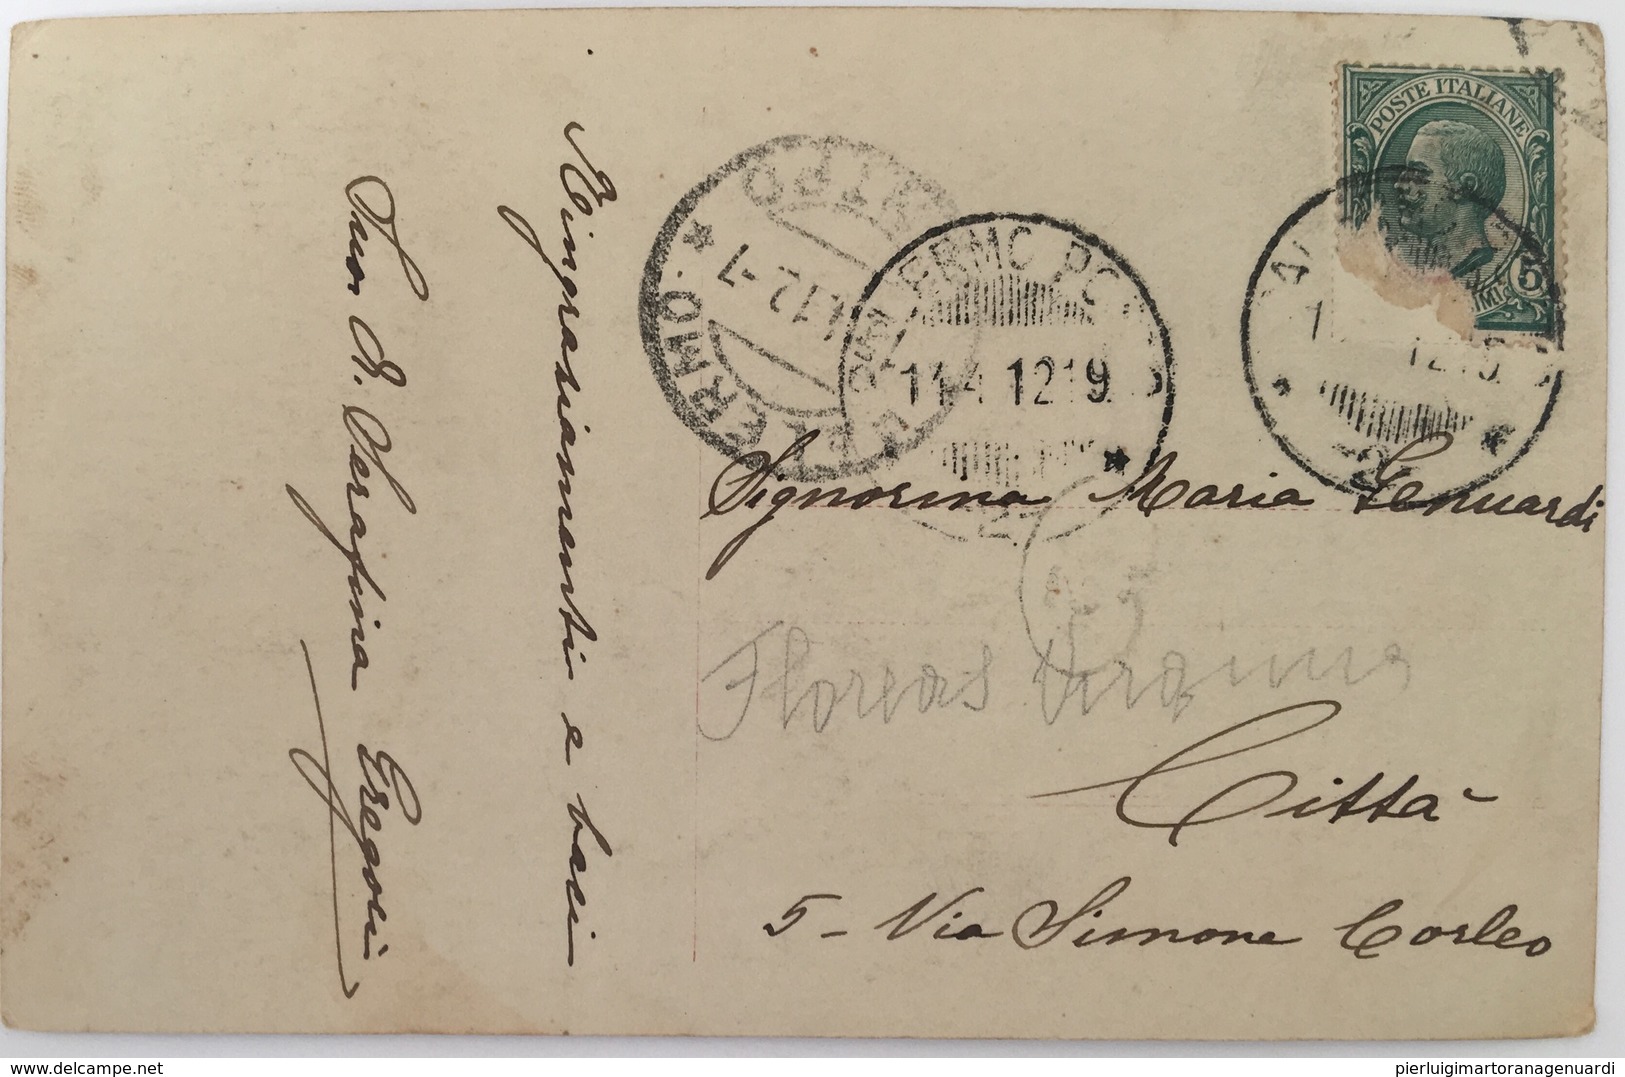 Ringraziamenti e baci
Suor A. Serafina Gregori
POSTE ITALIANE
5
PALERMO
12-7
PALERMO PO
11.4 1219
1219
Signorina Maria Genuardi
Città
5 - Via Simone Corleo
delcampe.net
pierluigimartoranagenuardi